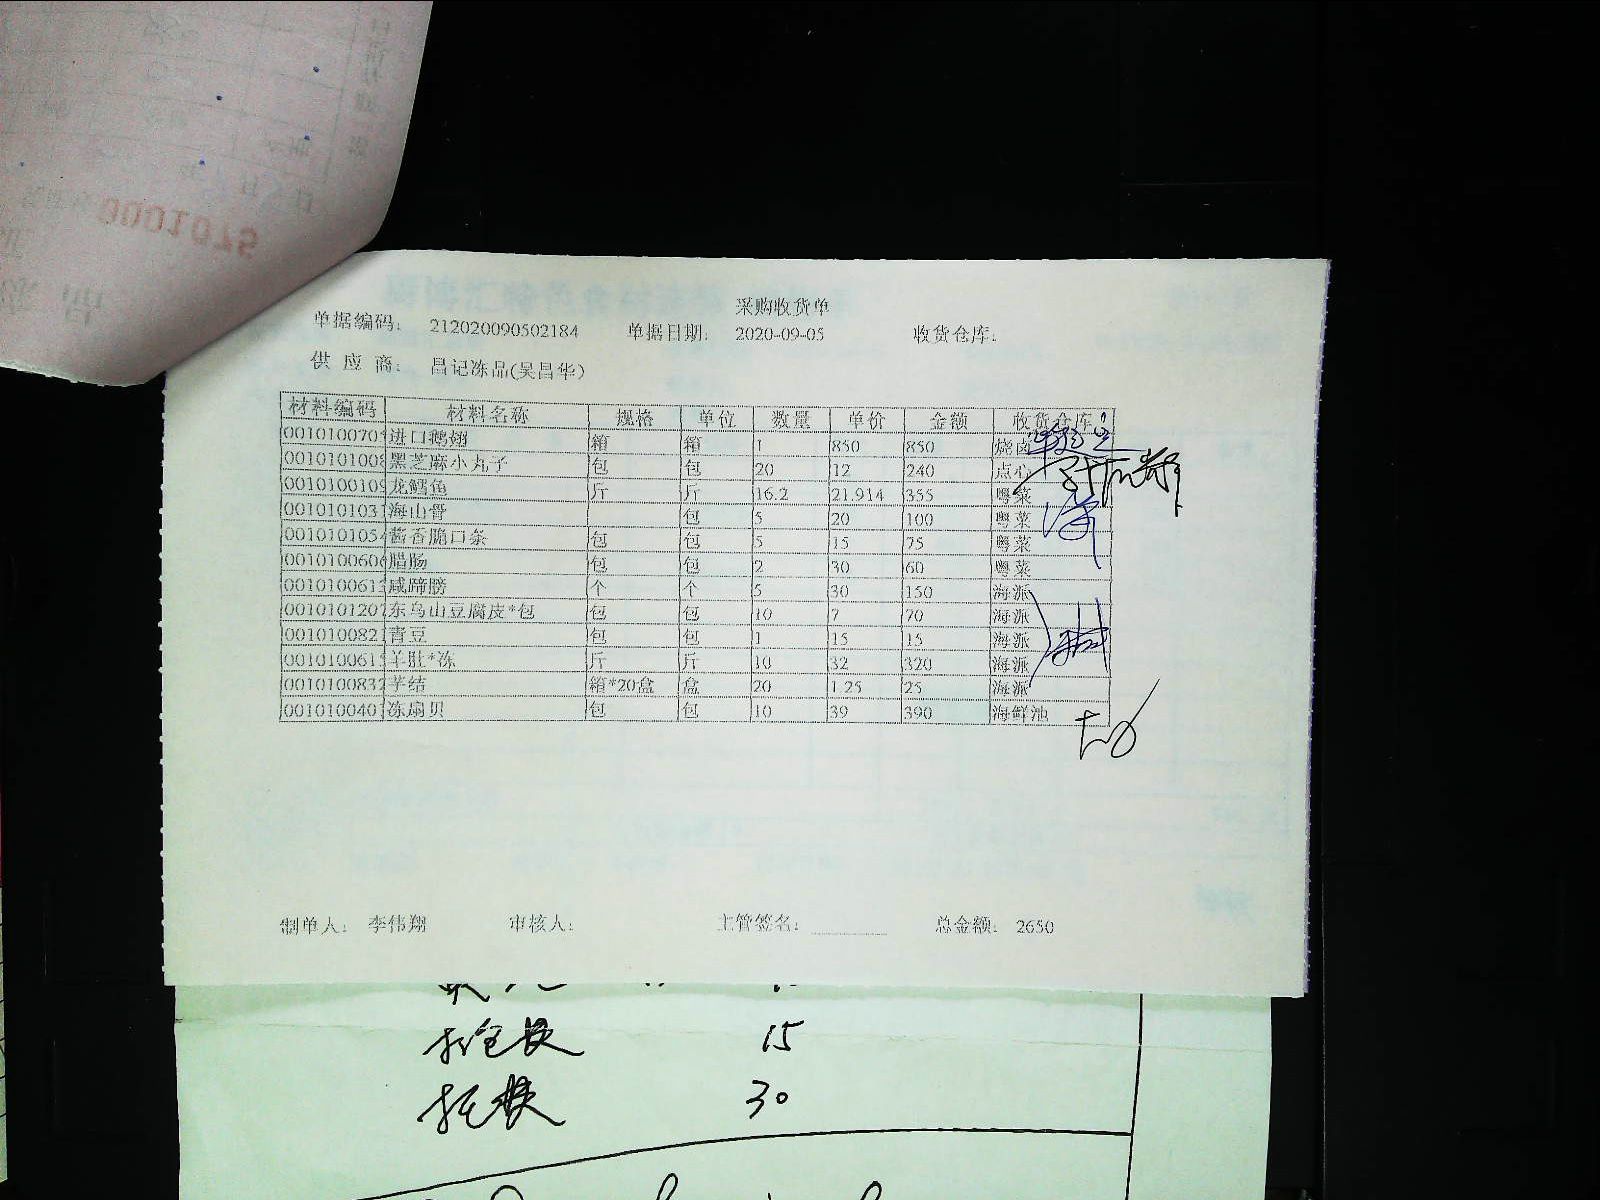 采购收货单
单据编码: 212020090502184 单据日期: 2020-09-05 收货仓库:
供应商: 昌记冻品(吴昌华)
材料编码 材料名称 规格 单位 数量 单价 金额 收货仓库
001010070 进口鹅翅 箱 箱 1 850 850 烧卤
001010100 黑芝麻小丸子 包 包 20 12 240 点心
001010010 龙鳕鱼 斤 斤 16.2 21.914 355 粤菜
001010103 海山骨 包 5 20 100 粤菜
001010105 酱香脆口条 包 包 5 15 75 粤菜
001010060 腊肠 包 包 2 30 60 粤菜
001010061 咸蹄膀 个 个 5 30 150 海派
001010120 东乌山豆腐皮*包 包 包 10 7 70 海派
001010082 青豆 包 包 1 15 15 海派
001010061 羊肚*冻 斤 斤 10 32 320 海派
001010083 芋结 箱*20盒 盒 20 1.25 25 海派
001010040 冻扇贝 包 包 10 39 390 海鲜池
制单人: 李伟翔 审核人: 主管签名: 总金额: 2650
15
30